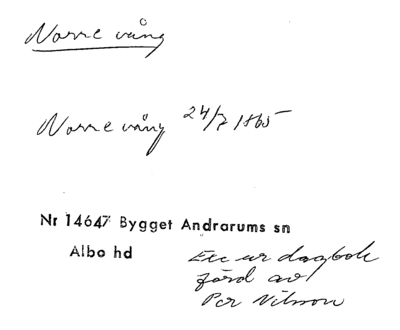 Norrevång
Norrevång 24/7 1865
Nr 14647 Bygget Andrarums sn
Albo hd
Exc ur dagbok
förd av
Per Nilsson